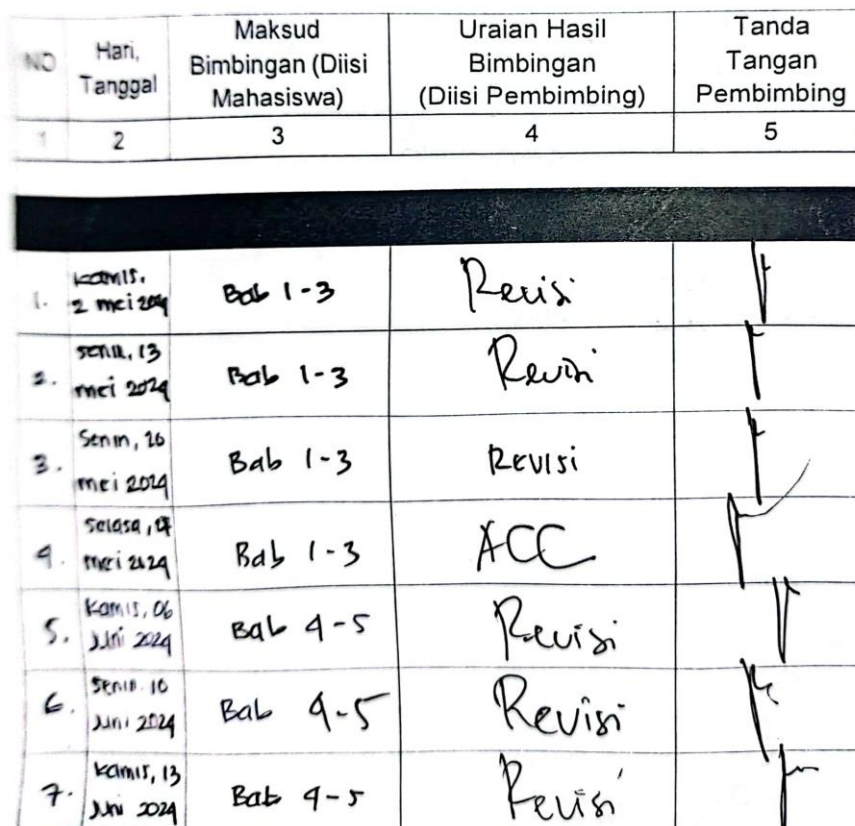 NO Hari, Tanggal Maksud Bimbingan (Diisi Mahasiswa) Uraian Hasil Bimbingan (Diisi Pembimbing) Tanda Tangan Pembimbing
1 2 3 4 5
1. Kamis, 2 mei 2024 Bab 1-3 Revisi
2. Senin, 13 mei 2024 Bab 1-3 Revisi
3. Senin, 20 mei 2024 Bab 1-3 Revisi
4. Selasa, mei 2024 Bab 1-3 ACC
5. Kamis, 06 Juni 2024 Bab 4-5 Revisi
6. Senin. 10 Juni 2024 Bab 4-5 Revisi
7. Kamis, 13 Juni 2024 Bab 4-5 Revisi